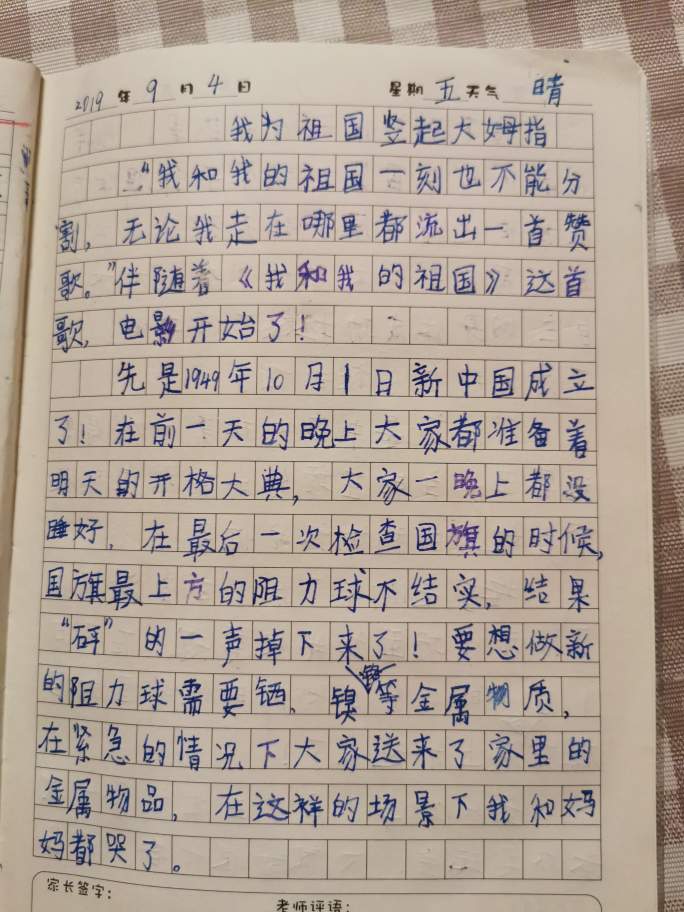 2019年9月4日 星期五天气晴
我为祖国竖起大姆指
“我和我的祖国一刻也不能分
割,无论我走在哪里都流出一首赞
歌。”伴随着《我和我的祖国》这首
歌,电影开始了!
先是1949年10月1日新中国成立
了!在前一天的晚上大家都准备着
明天的开格大典,大家一晚上都没
睡好,在最后一次检查国旗的时候,
国旗最上方的阻力球不结实,结果
“砰”的一声掉下来了!要想做新
的阻力球需要铯、镍等金属物质,
在紧急的情况下大家送来了家里的
金属物品,在这样的场景下我和妈
妈都哭了。
家长签字:
老师评语: